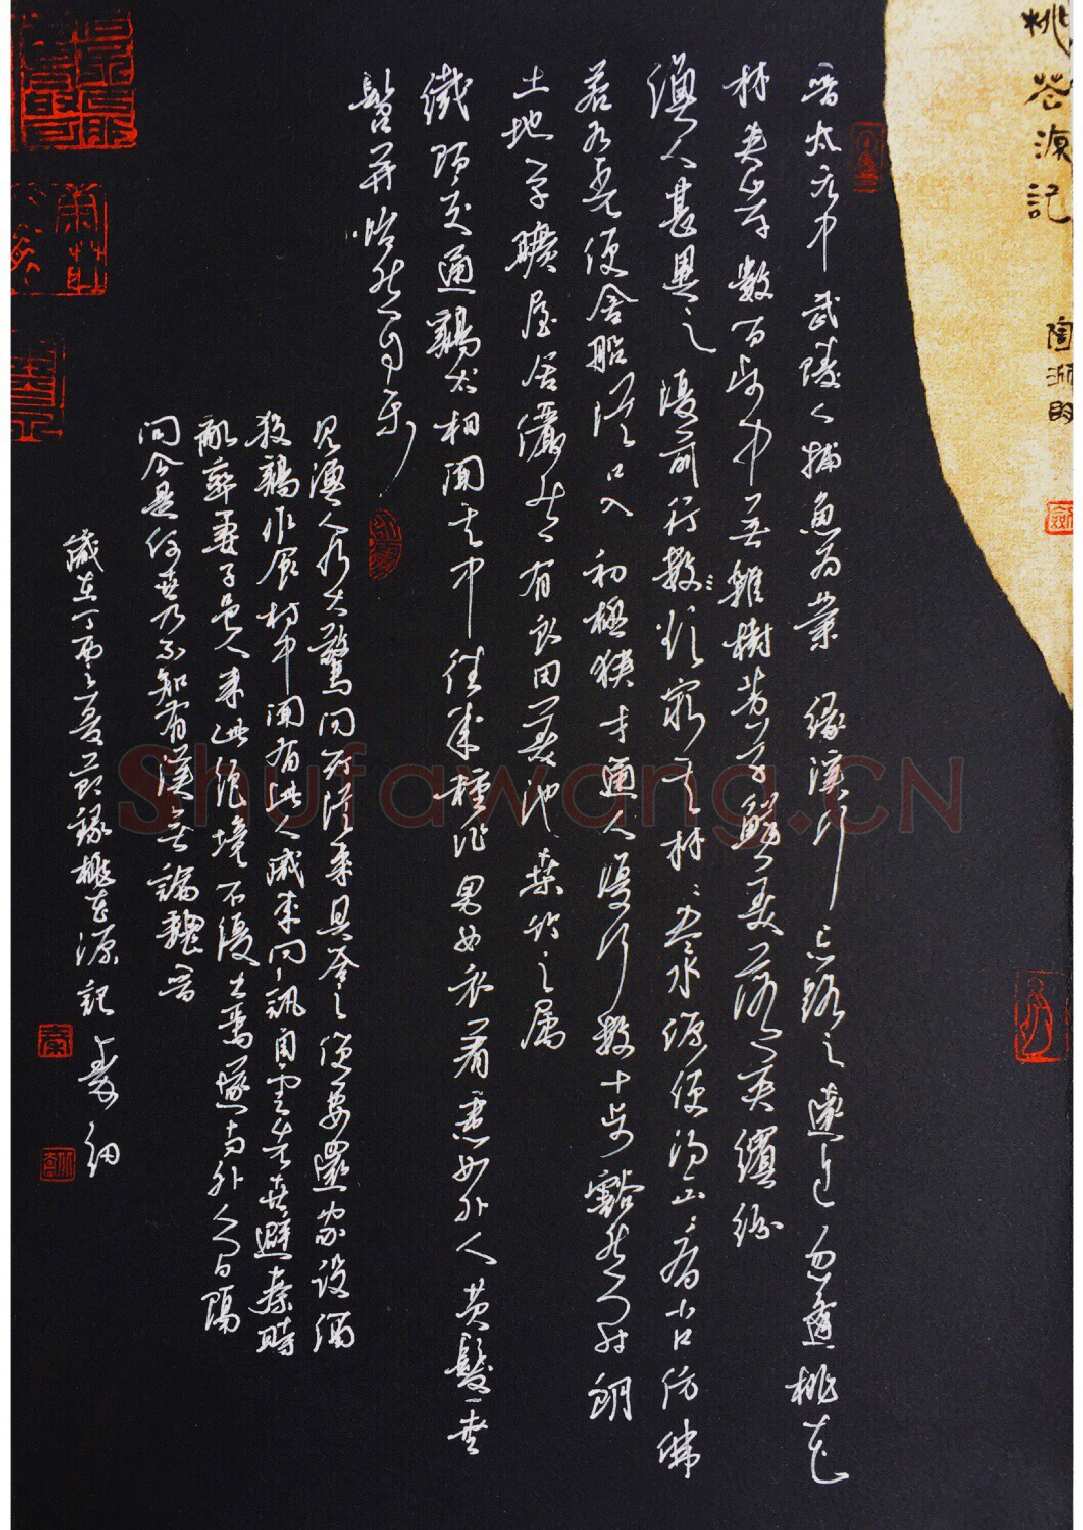 桃花源记
陶渊明
晋太元中武陵人捕鱼为業缘溪行忘路之遠近忽逢桃花
林夹岸数百步中無雜樹芳草鲜美落英缤纷
漁人甚異之復前行数欲穷其林林盡水源便得山山有小口仿佛
若有光便舍船從口入初極狭才通人復行数十步豁然開朗
土地平曠屋居儼然有良田美池桑竹之属
纖陌交通鷄犬相聞其中往來種作男女衣着悉如外人黄髮垂
髫并怡然自乐
見漁人乃大驚问所從來具答之便要還家设酒
殺鷄作食村中聞有此人咸來问訊自雲先世避秦時
亂率妻子邑人來此绝境不復出焉遂与外人间隔
问今是何世乃不知有漢無論魏晋
歲在丁酉之 錄桃花源記
Shufawang.CN